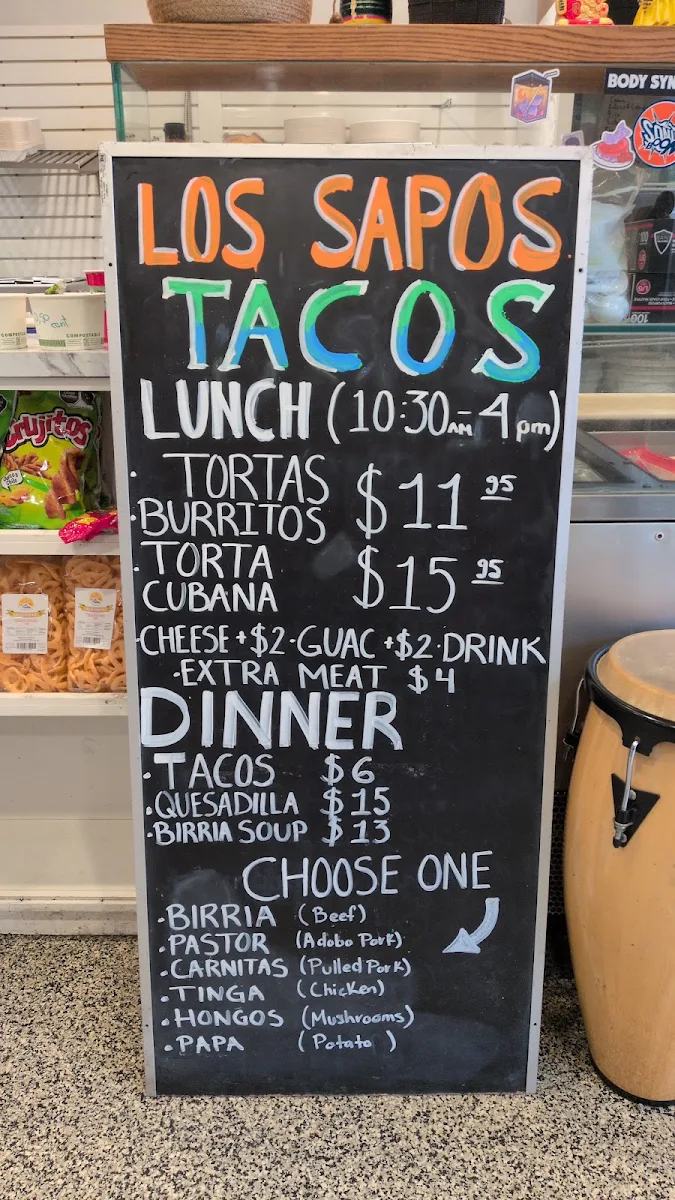 BODY SYN
LOS SAPOS
TACOS
LUNCH (10:30AM-4pm)
· TORTAS
· BURRITOS $11 95
· TORTA
CUBANA $15 95
·CHEESE +$2·GUAC +$2·DRINK
·EXTRA MEAT $4
DINNER
·TACOS $6
·QUESADILLA $15
·BIRRIA SOUP $13
CHOOSE ONE
·BIRRIA (Beef)
·PASTOR (Adobo Pork)
·CARNITAS (Pulled Pork)
·TINGA (Chicken)
·HONGOS (Mushrooms)
·PAPA (Potato )
COMPOSTABLE
100